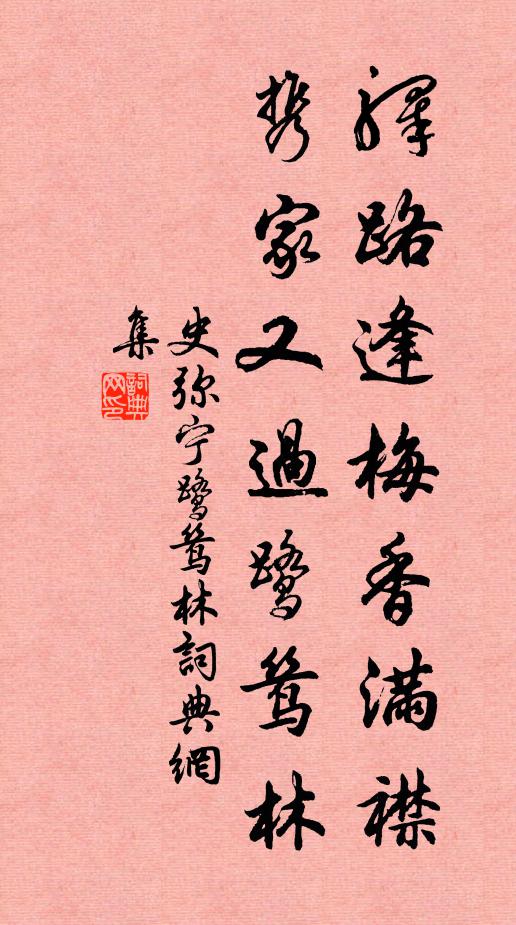 驛路逢梅香滿襟
携家又過鷺鴛林
史弥宁鷺鴛林詞典網
集
詞典网印